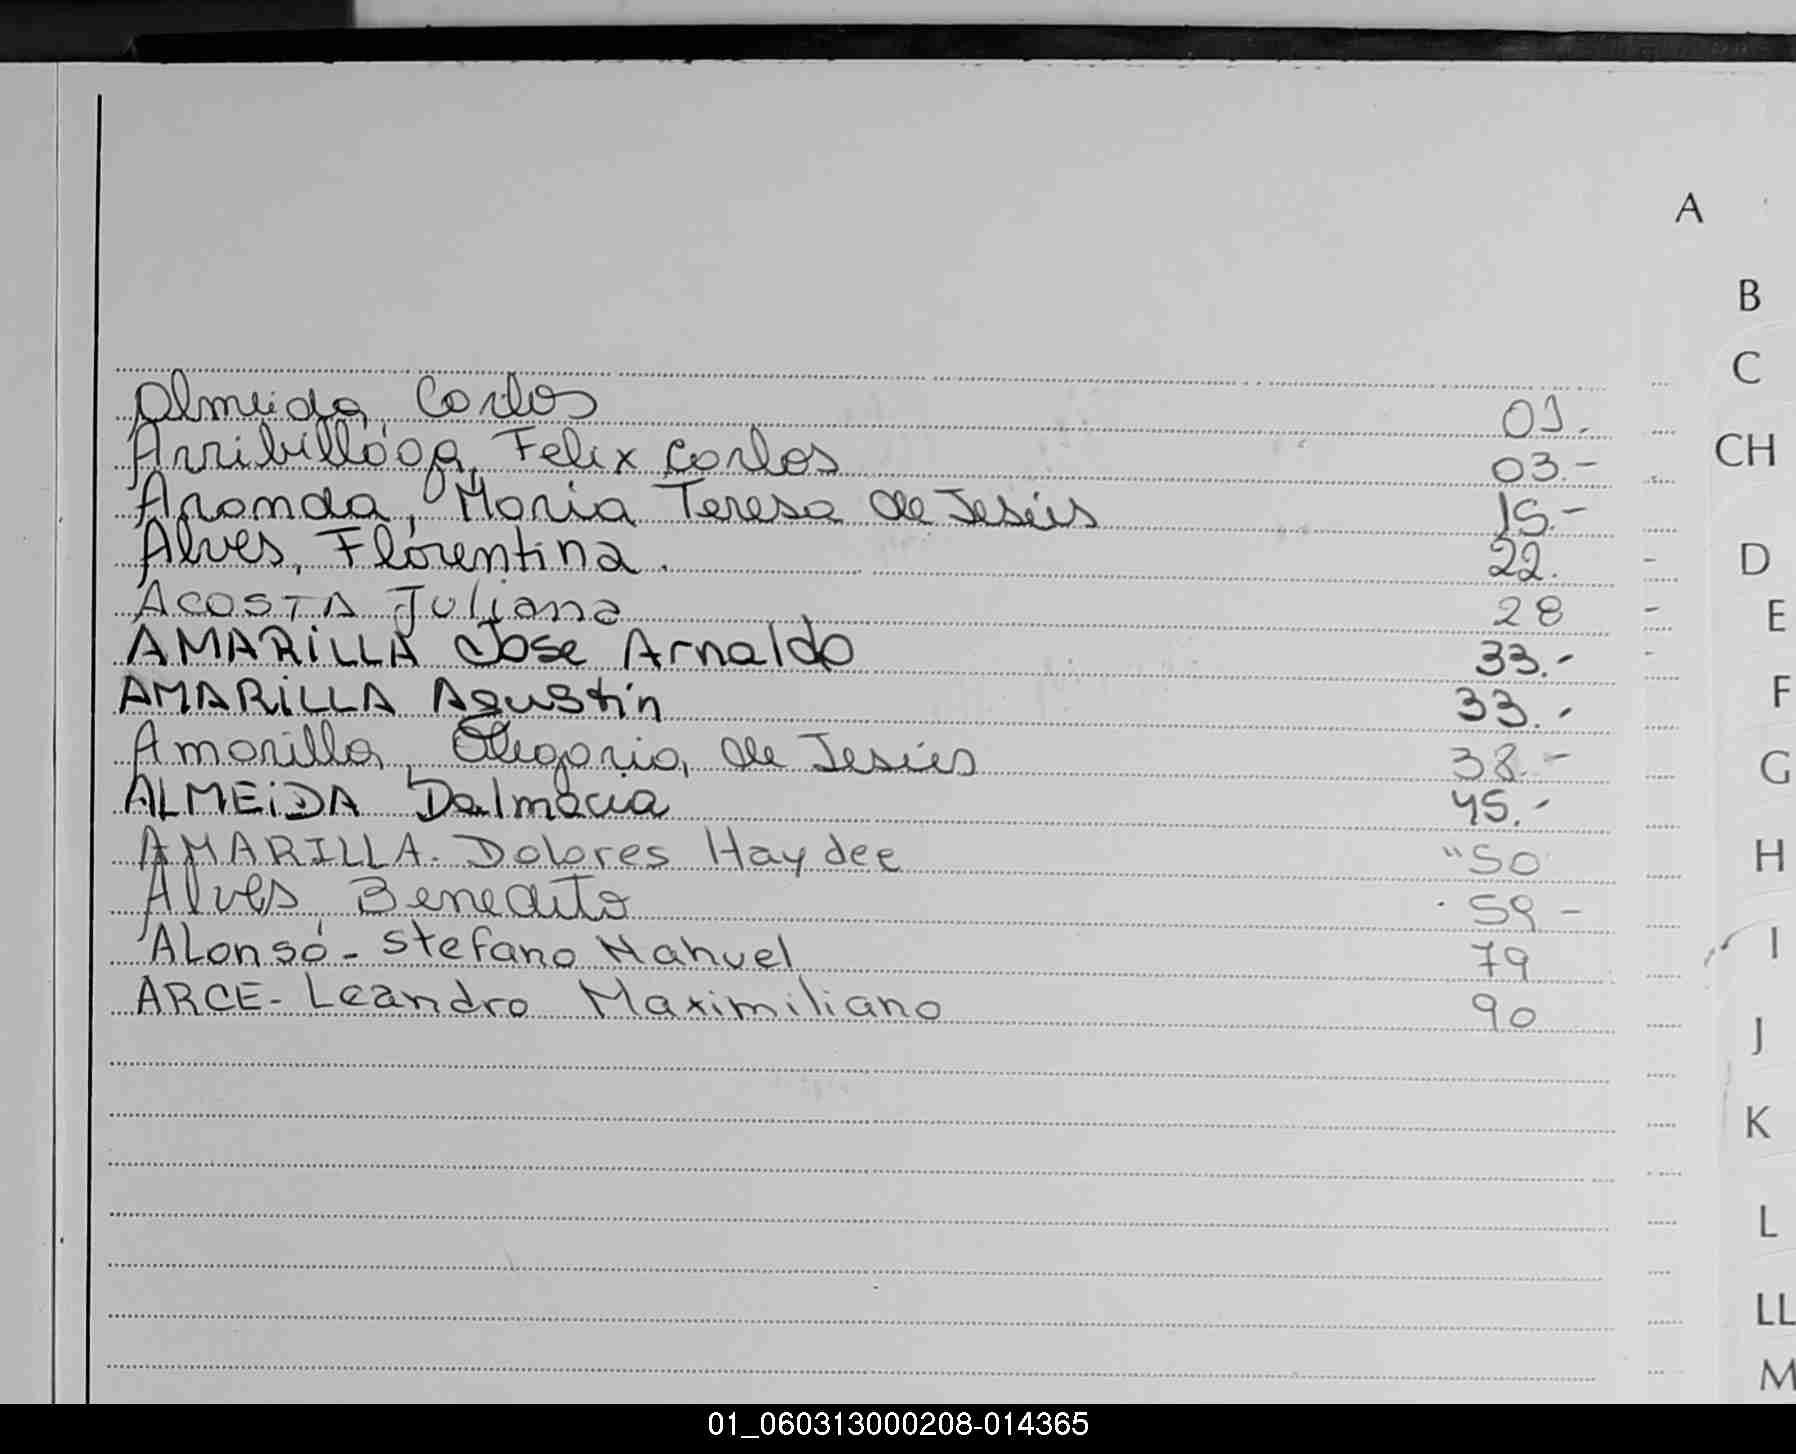 A
B
C
CH
D
E
F
G
H
I
J
K
L
LL
M
Almeida, Carlos 01.
Arribillaga, Felix Carlos 03.-
Aranda, Maria Teresa de Jesús 15.-
Alves, Florentina. 22.
ACOSTA Juliana 28
AMARiLLA Jose Arnaldo 33.-
AMARiLLA Agustín 33.-
Amarilla, Olegario, de Jesús 38.-
ALMEiDA Dalmacia 45.-
AMARILLA. Dolores Haydee "50
Alves, Benedito 59-
ALonso - Stefano Nahuel 79
ARCE- Leandro Maximiliano 90
01_060313000208-014365